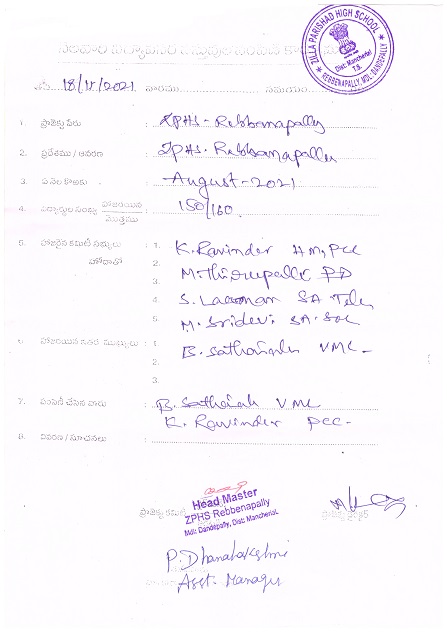 ZILLA PARISHAD HIGH SCHOOL
Dist: Mancherial
T.S.
REBBENAPALLY, MDL: DANDEPALLY
18/11/2021 వారము సమయం
1. ప్రాజెక్టు పేరు : ZPHS - Rebbanapally
2. ప్రదేశము / ఆవరణ : ZPHS - Rebbanapally
3. ఏ నెల కొఱకు : August - 2021
4. విద్యార్థుల సంఖ్య హాజరయిన / మొత్తము : 150/160
5. హాజరైన కమిటీ సభ్యులు : 1. K. Ravinder HM, PCC
హోదాతో 2. M. Thirupathi PD
3.
4. S. Laxman SA Telu
5. M. Sridevi SA. Soc
6. హాజరయిన ఇతర ముఖ్యులు : 1. B. Sathaiah VMC
2.
3.
7. పంపిణీ చేసిన వారు : B. Sathaiah VMC
K. Ravinder PCC
8. వివరణ / సూచనలు :
Head Master
ZPHS Rebbenapally
Mdl: Dandepally, Dist: Mancherial.
ప్రాజెక్టు కమిటీ
P. Dhanalakshmi
Asst. Manager